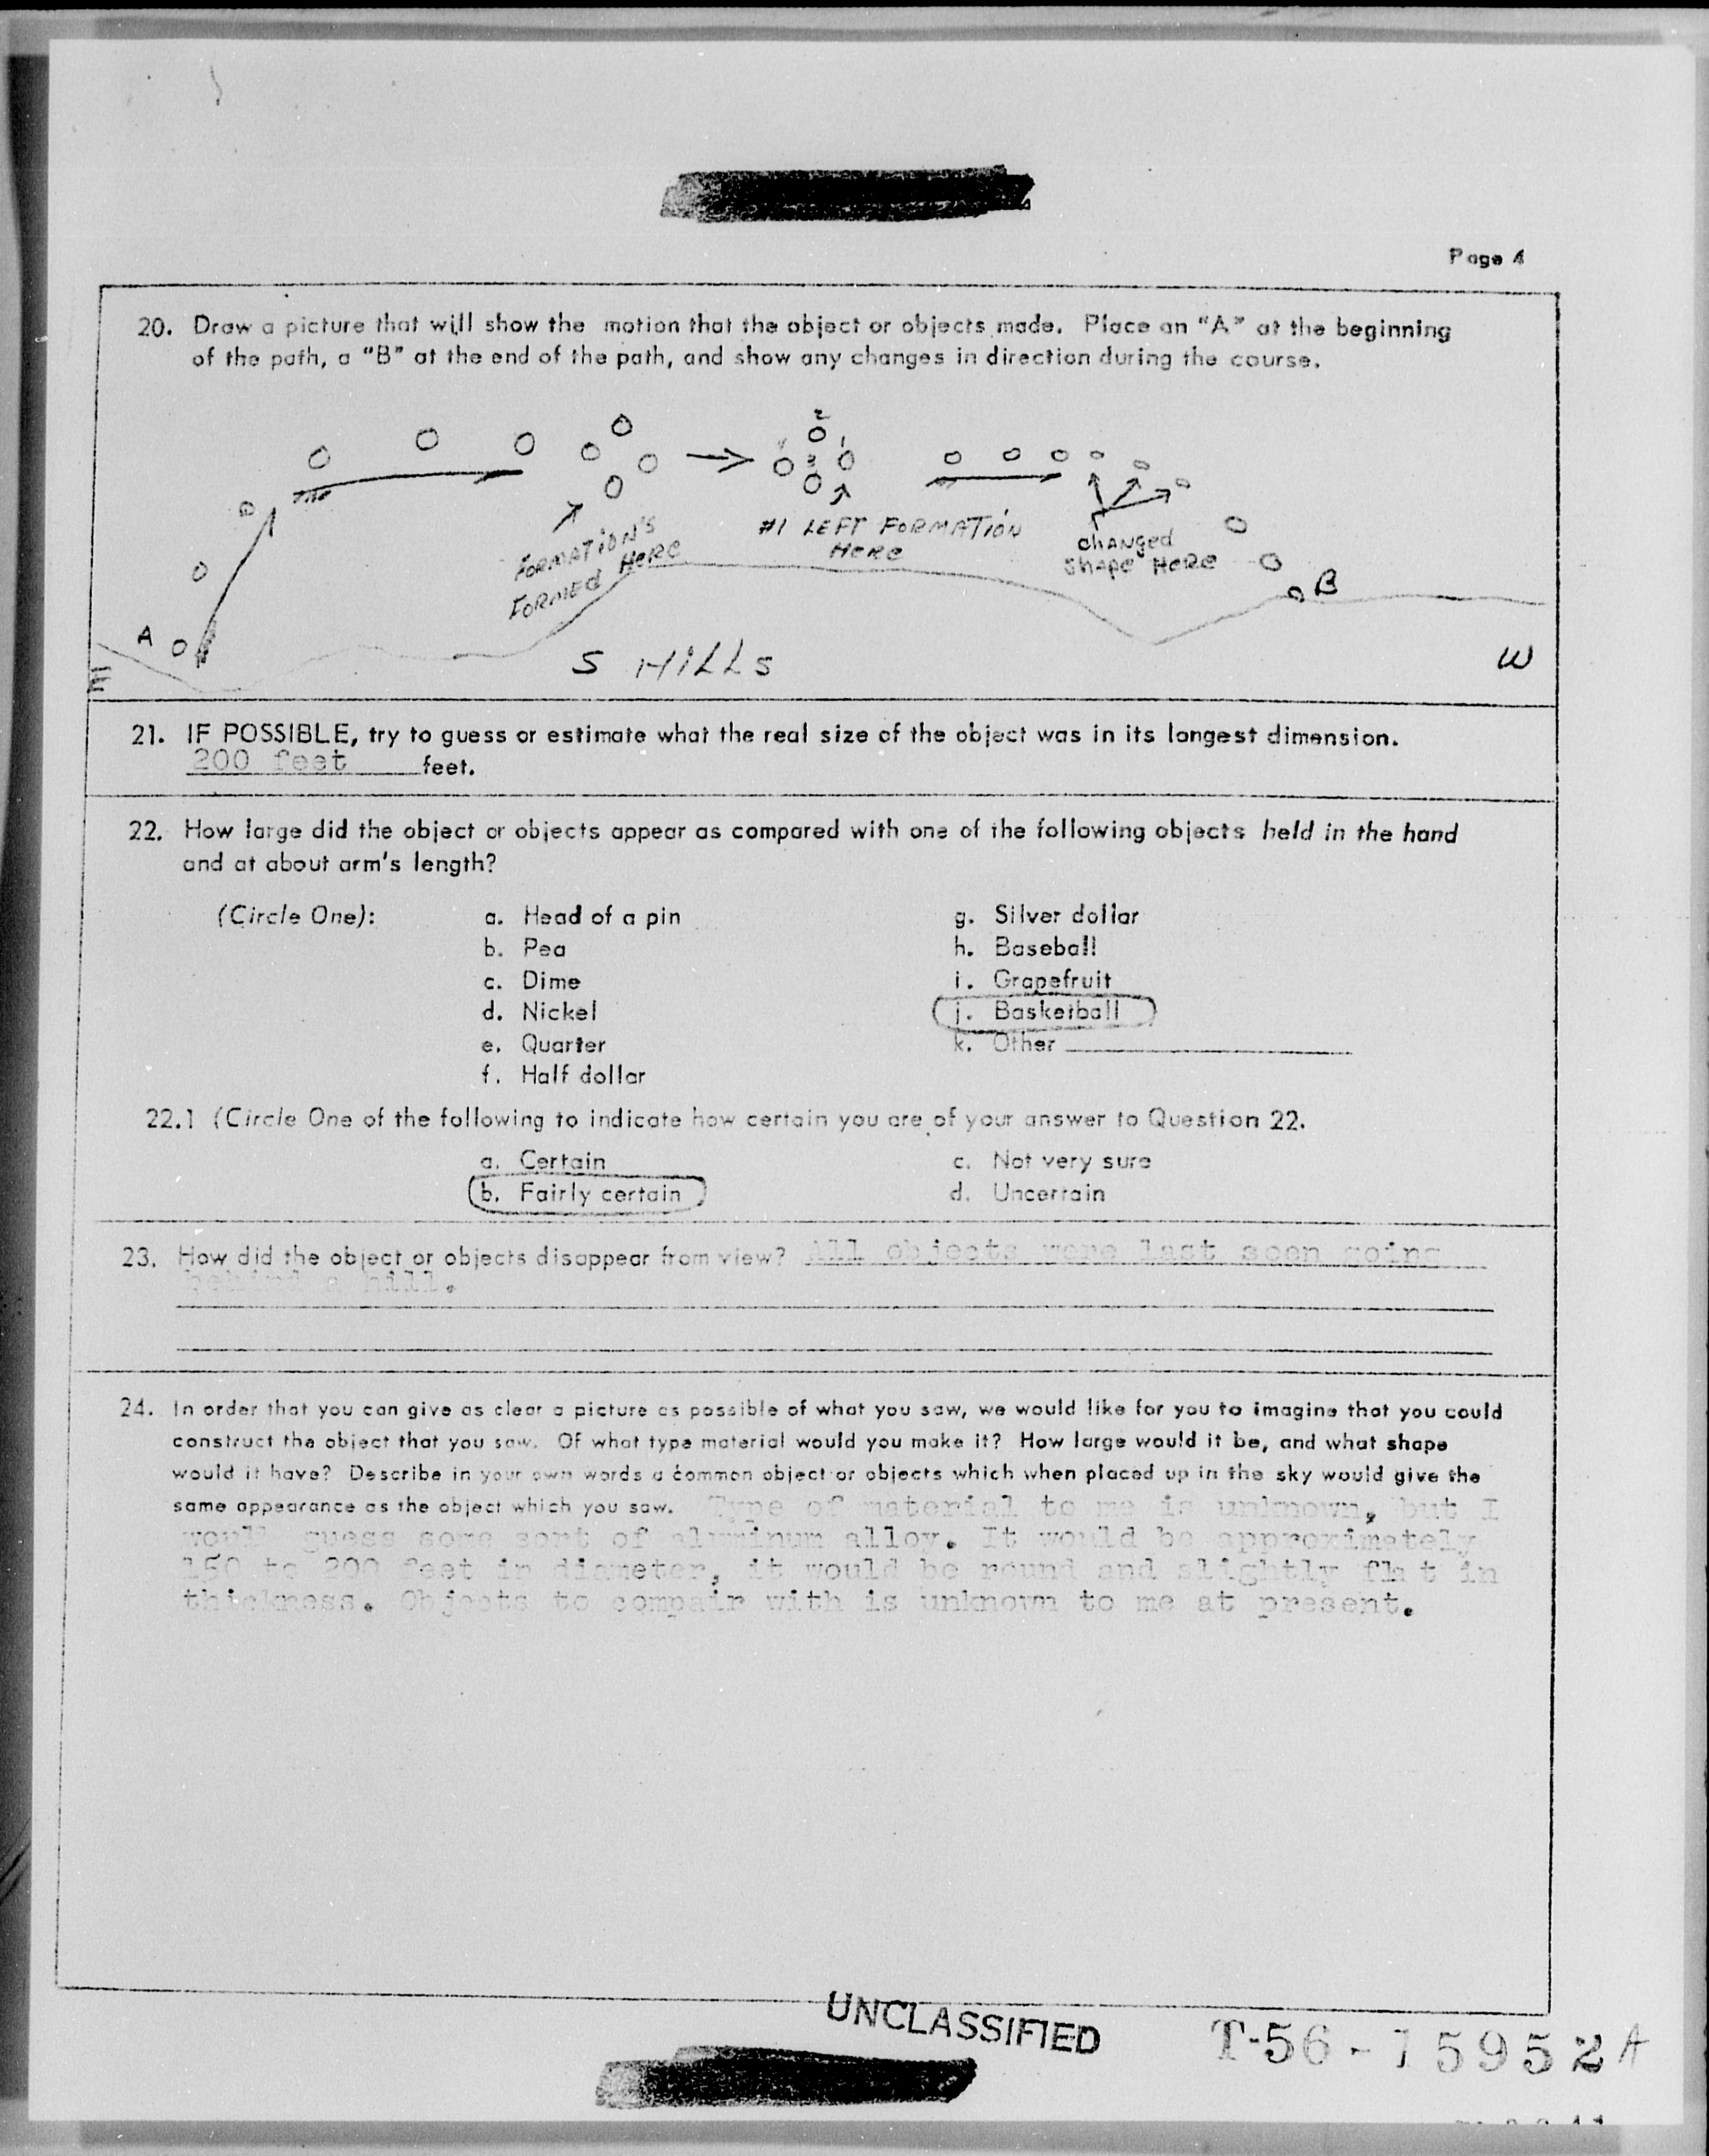 Page 4
20. Draw a picture that will show the motion that the object or objects made. Place an "A" at the beginning
of the path, a "B" at the end of the path, and show any changes in direction during the course.
2
1
3
FORMATION'S
FORMED HERE
#1 LEFT FORMATION
HERE
CHANGED
SHAPE HERE
B
A
E
S HILLS
W
21. IF POSSIBLE, try to guess or estimate what the real size of the object was in its longest dimension.
200 feet feet.
22. How large did the object or objects appear as compared with one of the following objects held in the hand
and at about arm's length?
(Circle One):
a. Head of a pin
b. Pea
c. Dime
d. Nickel
e. Quarter
f. Half dollar
g. Silver dollar
h. Baseball
i. Grapefruit
j. Basketball
k. Other
22.1 (Circle One of the following to indicate how certain you are of your answer to Question 22.
a. Certain
b. Fairly certain
c. Not very sure
d. Uncertain
23. How did the object or objects disappear from view? All objects were last seen going
behind a hill.
24. In order that you can give as clear a picture as possible of what you saw, we would like for you to imagine that you could
construct the object that you saw. Of what type material would you make it? How large would it be, and what shape
would it have? Describe in your own words a common object or objects which when placed up in the sky would give the
same appearance as the object which you saw. Type of material to me is unknown, but I
would guess some sort of aluminum alloy. It would be approximately
150 to 200 feet in diameter, it would be round and slightly flat in
thickness. Objects to compair with is unknown to me at present.
UNCLASSIFIED
T-56-15952A